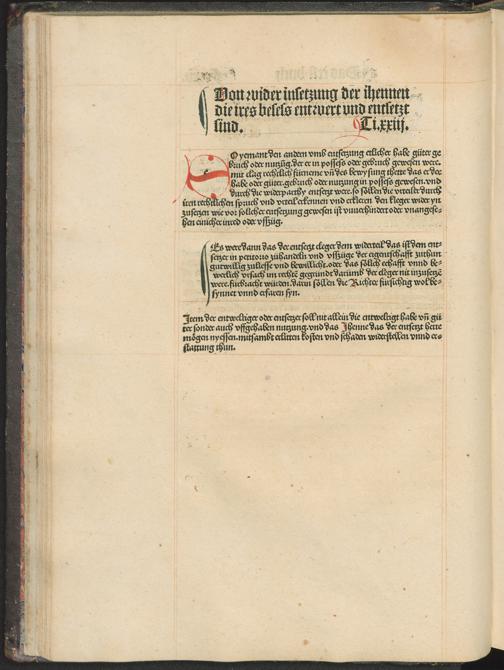 Von wider insetzung der ihennen
die ires besess entwert vnd entsetzt
sind. Ti.xxiij.
SO yemant den andern vmb entsetzung etlicher habe güter ge
bruch oder nutzung. der er in possess oder gebruch gewesen were.
mit clag rechtlich fürneme vnd des bewysung thette das er der
habe oder güter. gebruch oder nutzung in possess gewesen. vnd
durch die widerparthy entsetzt were. so söllen die vrteiler durch
iren rechtlichen spruch vnd vrteil erkennen vnd erkleren den cleger wider yn
zusetzen wie vor sollicher entsetzung gewesen ist vnuerhindert oder vnangese-
hen einicher inred oder vsszüg.
Es were dann das der entsetzt cleger dem widerteil das ist dem ent-
setzer in petitorio zühandeln vnd vsszüge der eigenschafft zuthun
gutwillig züliesse vnd bewillicht. oder das söllich ehafft vnnd be-
weglich vrsach im rechte gegründt darumb der cleger nit inzusetze
were. fürbracht würden. darin söllen die Richter fürsichtig wolbe-
synnet vnnd erfaren syn.
Item der entweltiger oder entsetzer soll nit allein die entweltigt habe vn gü
ter sonder auch vffgehaben nutzung. vnd das Ihenne das der entsetzt hette
mögen nyessen. mitsambt erlitten kosten vnd schaden widerstellen vnnd er-
stattung thun.